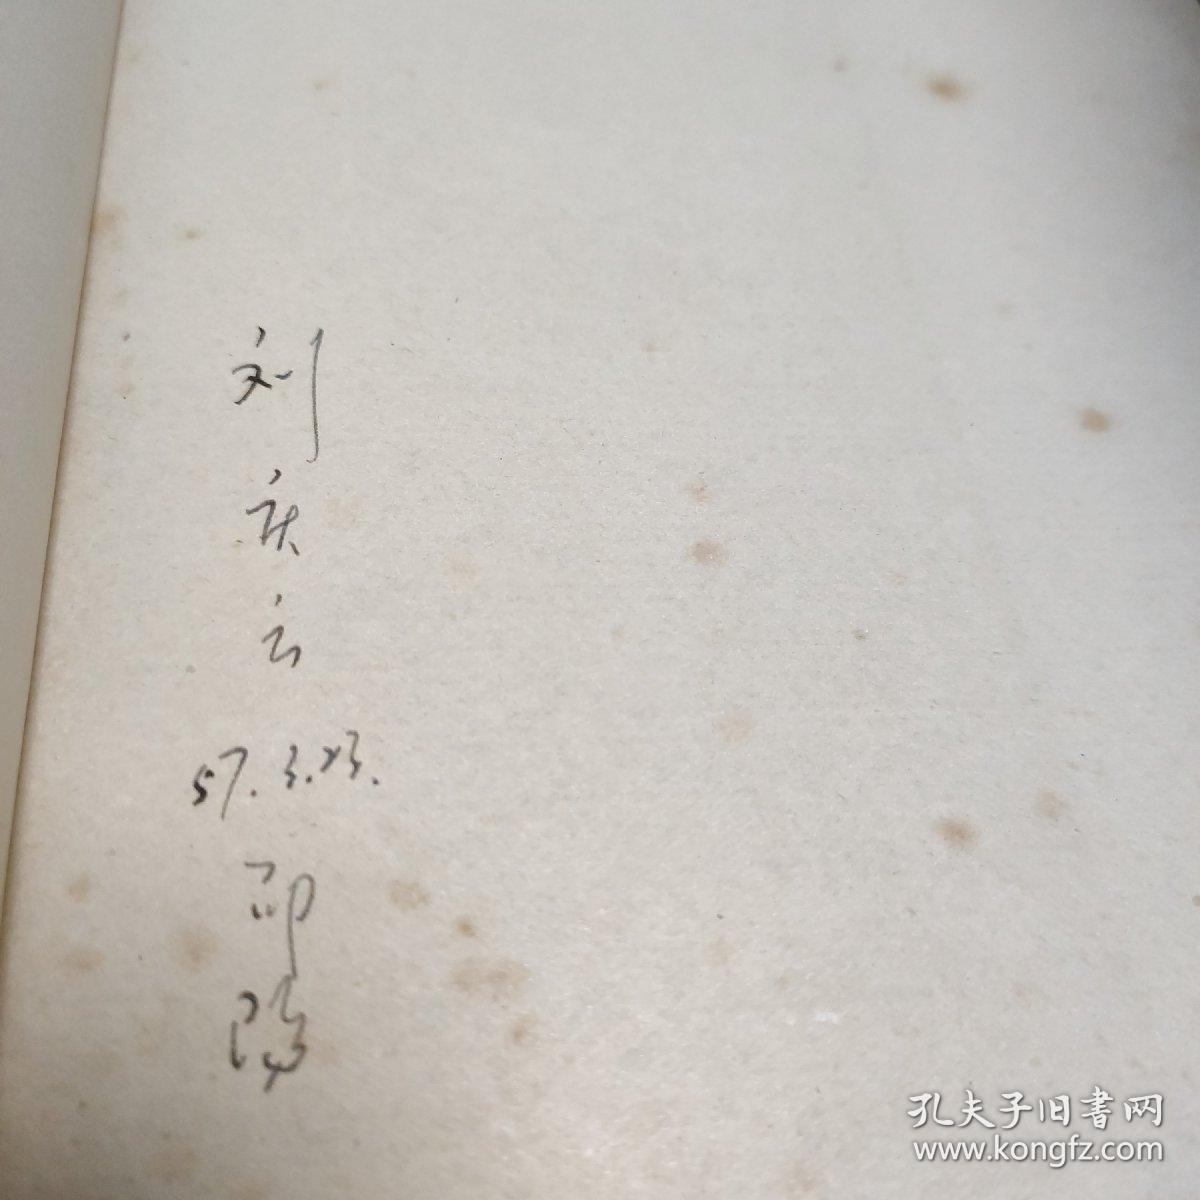 刘
庆
云
57.3.23.
邵
阳
孔夫子旧書网
www.kongfz.com